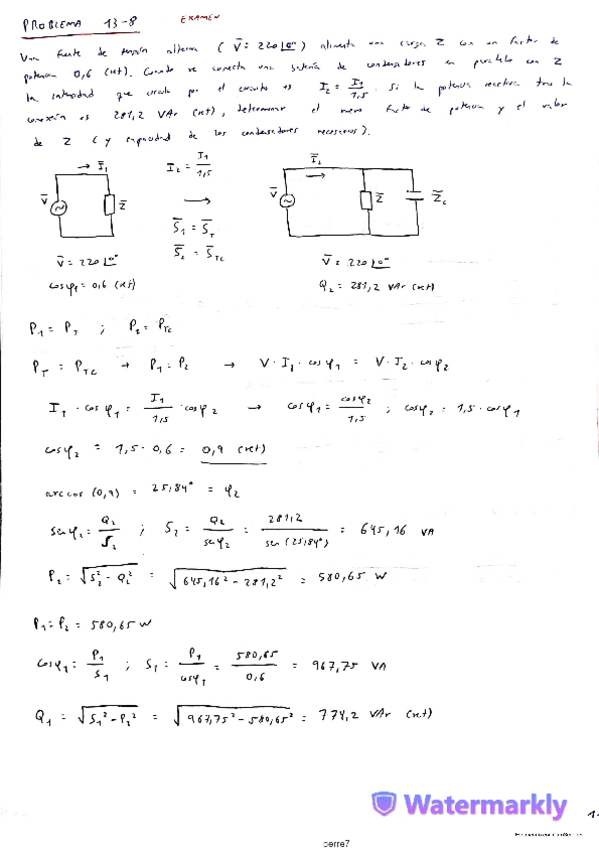 PROBLEMA 13-8 EXAMEN
Una fuente de tensión alterna (V̄ = 220∠0°) alimenta una carga Z con un factor de
potencia 0,6 (ret). Cuando se conecta una batería de condensadores en paralelo con Z
la intensidad que circula por el circuito es I₂ = I₁/1,5. Si la potencia reactiva tras la
conexión es 281,2 VAr (ret), determinar el nuevo factor de potencia y el valor
de Z (y capacidad de los condensadores necesarios).
→ Ī₁ I₂ = I₁/1,5 Ī₂ →
V̄ Z̄ → V̄ Z̄ Z̄c
S̄₁ = S̄T
S̄₂ = S̄TC
V̄ = 220∠0° V̄ = 220∠0°
cosφ₁ = 0,6 (ret) Q₂ = 281,2 VAr (ret)
P₁ = PT ; P₂ = PTC
PT = PTC → P₁ = P₂ → V · I₁ · cosφ₁ = V · I₂ · cosφ₂
I₁ · cosφ₁ = I₁/1,5 · cosφ₂ → cosφ₁ = cosφ₂/1,5 ; cosφ₂ = 1,5 · cosφ₁
cosφ₂ = 1,5 · 0,6 = 0,9 (ret)
arccos (0,9) = 25,84° = φ₂
senφ₂ = Q₂/S₂ ; S₂ = Q₂/senφ₂ = 281,2/sen (25,84°) = 645,16 VA
P₂ = √(S₂² - Q₂²) = √(645,16² - 281,2²) = 580,65 W
P₁ = P₂ = 580,65 W
cosφ₁ = P₁/S₁ ; S₁ = P₁/cosφ₁ = 580,65/0,6 = 967,75 VA
Q₁ = √(S₁² - P₁²) = √(967,75² - 580,65²) = 774,2 VAr (ret)
Watermarkly
perre7